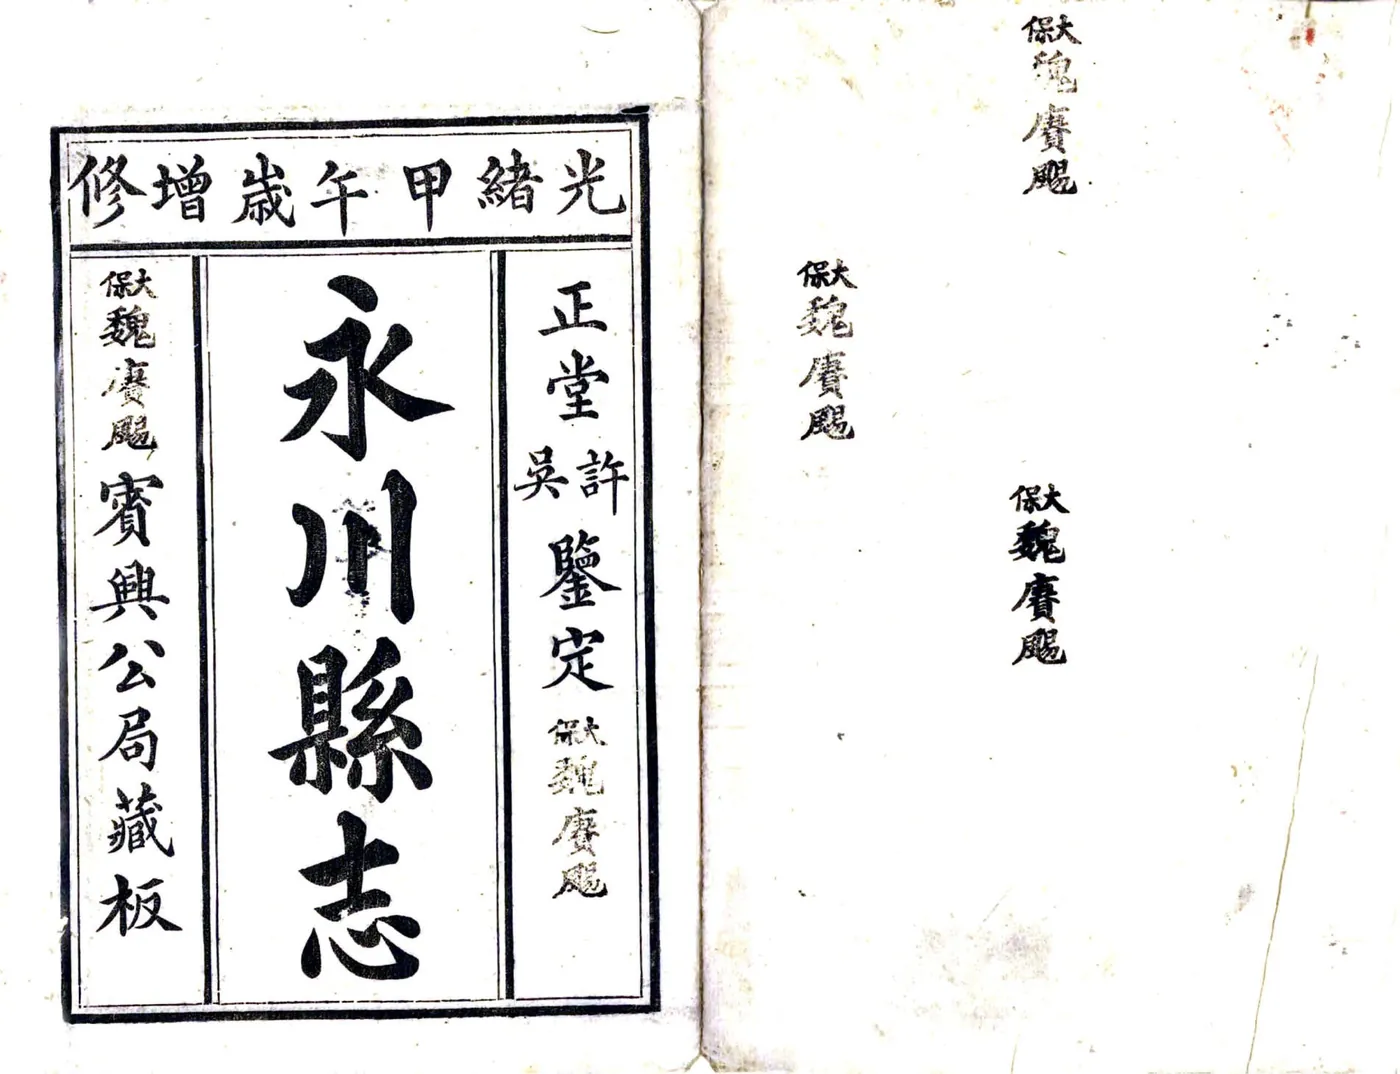 大保魏賡颺
大保魏賡颺
大保魏賡颺
光緒甲午歲增修
正堂許吳鑒定
大保魏賡颺
永川縣志
大保魏賡颺
賓興公局藏板